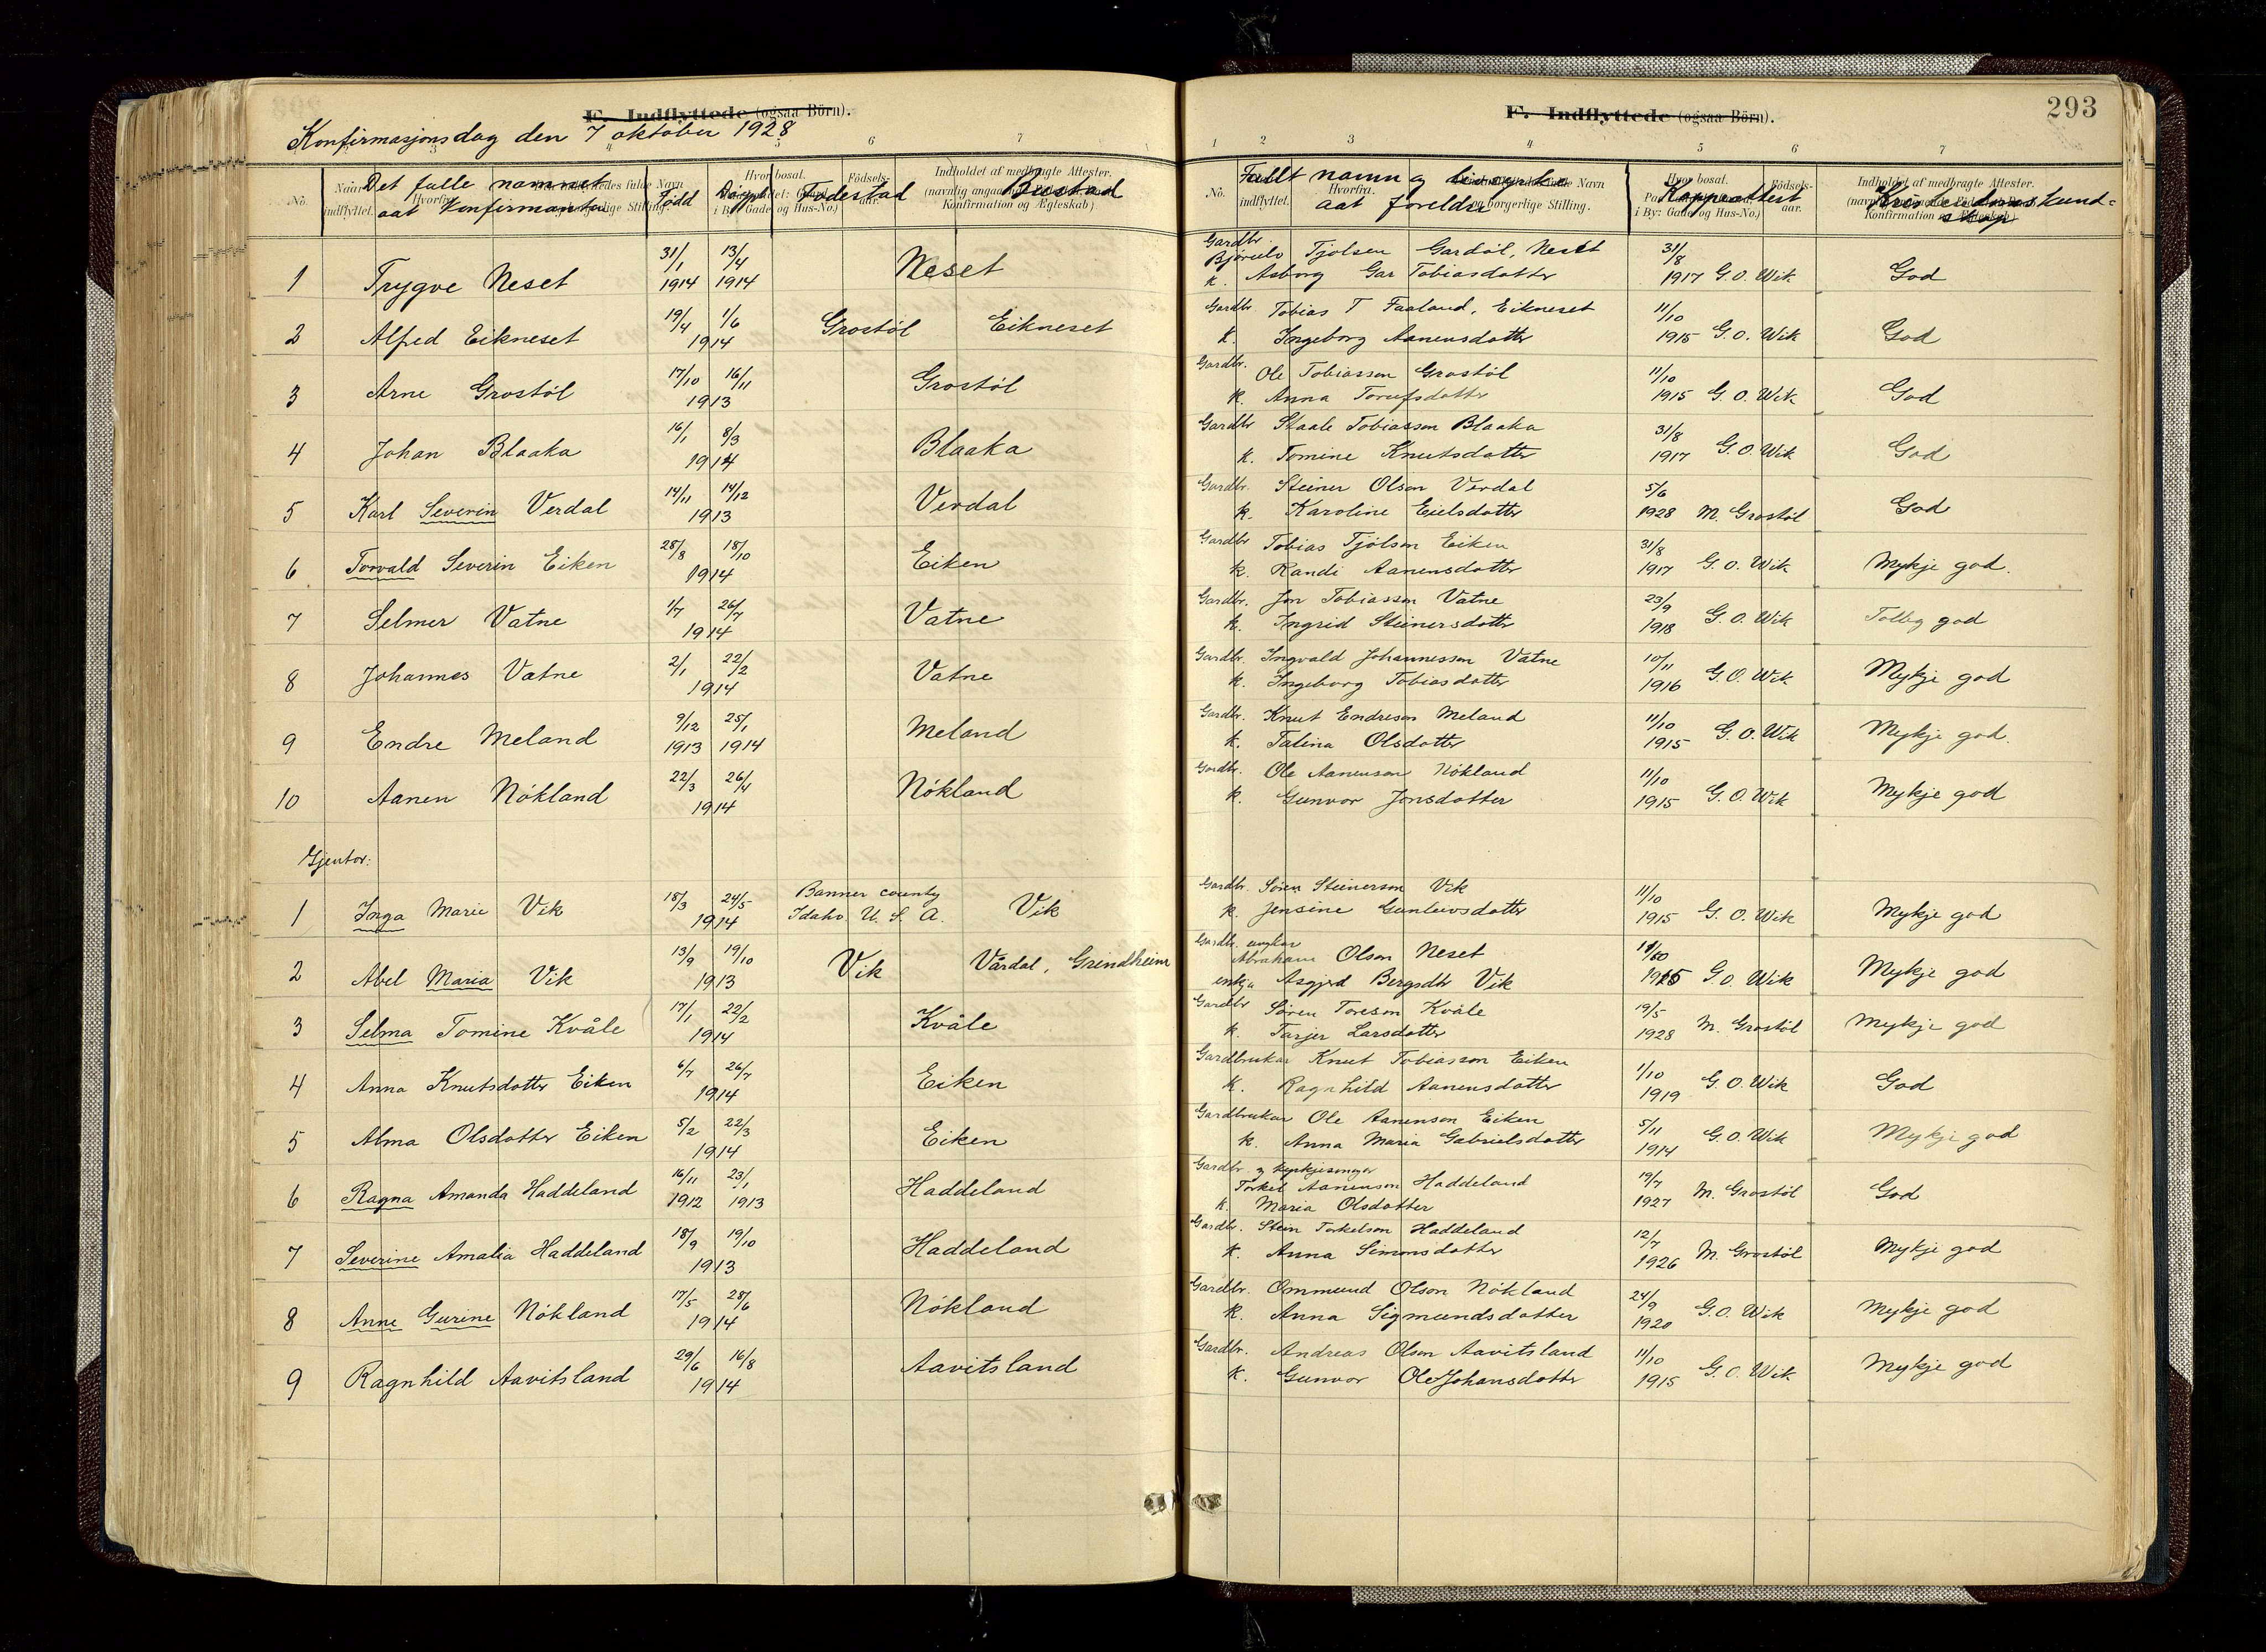 F. Indflyttede (ogsaa Börn).
Konfirmasjonsdag den 7 oktober 1928
3 4 5 6 7
No. Det fulle namnet aat Konfirmanten Född Döypt Fødestad Bustad
1 Trygve Neset 31/1 1914 13/4 1914 Neset
2 Alfred Eikneset 19/4 1/6 1914 Grostöl Eikneset
3 Arne Grostöl 17/10 16/11 1913 Grostöl
4 Johan Blaaka 16/1 8/3 1914 Blaaka
5 Karl Severin Verdal 14/11 14/12 1913 Verdal
6 Torvald Severin Eiken 28/8 18/10 1914 Eiken
7 Selmer Vatne 1/7 26/7 1914 Vatne
8 Johannes Vatne 2/1 22/2 1914 Vatne
9 Endre Meland 9/12 1913 25/1 1914 Meland
10 Aanen Nökland 22/3 26/4 1914 Nökland
Gjentor:
1 Inga Marie Vik 18/3 24/5 1914 Banner county Idaho U. S. A. Vik
2 Abel Maria Vik 13/9 19/10 1913 Vik Vårdal, Grindheim
3 Selma Tomine Kvåle 17/1 22/2 1914 Kvåle
4 Anna Knutsdotter Eiken 6/7 26/7 1914 Eiken
5 Alma Olsdotter Eiken 5/2 22/3 1914 Eiken
6 Ragna Amanda Haddeland 16/11 1912 23/1 1913 Haddeland
7 Severine Amalia Haddeland 18/9 19/10 1913 Haddeland
8 Anne Gurine Nökland 17/5 28/6 1914 Nökland
9 Ragnhild Aavitsland 29/6 16/8 1914 Aavitsland
F. Indflyttede (ogsaa Börn).
293
1 2 3 4 5 6 7
No. Fullt namn og aat foreldre Koppeattest Kristendomskundskap
Gardbr. Tjölsen Gardöl, Neset
k. Asborg Tobiasdotter 31/8 1917 G. O. Wik God
Gardbr Tobias T Faaland, Eikneset
k. Ingeborg Aanensdotter 11/10 1915 G. O. Wik God
Gardbr. Ole Tobiasson Grostöl
k. Anna 11/10 1915 G. O. Wik God
Gardbr Staale Tobiasson Blaaka
k. Tomine Knutsdotter 31/8 1917 G. O. Wik God
Gardbr. Steiner Olson Verdal
k. Karoline Eielsdotter 5/6 1928 M. Grostöl God
Gardbr Tobias Tjölson Eiken
k. Randi Aanensdotter 31/8 1917 G. O. Wik Mykje god.
Gardbr. Jon Tobiasson Vatne
k. Ingrid Steinersdotter 23/9 1918 G. O. Wik god
Gardbr. Ingvald Johannesson Vatne
k. Ingeborg Tobiasdotter 10/11 1916 G. O. Wik Mykje god
Gardbr. Knut Endreson Meland
k. Talina Olsdotter 11/10 1915 G. O. Wik Mykje god.
Gardbr. Ole Aanenson Nökland
k. Gunvor Jonsdotter 11/10 1915 G. O. Wik Mykje god
Gardbr. Sören Steinerson Vik
k. Jensine Gunleivsdotter 11/10 1915 G. O. Wik Mykje god
Gardbr. ungkar Abraham Olson Neset
enkja Asgjerd Bergsdtr Vik 1915 G. O. Wik Mykje god
Gardbr Sören Toreson Kvåle
k. Tarjer Larsdotter 19/5 1928 M. Grostöl Mykje god
Gardbrukar Knut Tobiasson Eiken
k. Ragnhild Aanensdotter 1/10 1919 G. O. Wik God
Gardbrukar Ole Aanenson Eiken
k. Anna Maria Gabrielsdotter 5/11 1914 G. O. Wik Mykje god
Gardbr. og kyrkjesongar
Torkel Aanenson Haddeland
k. Maria Olsdotter 19/7 1927 M. Grostöl God
Gardbr. Stein Torkelson Haddeland
k. Anna Simonsdotter 12/7 1926 M. Grostöl Mykje god
Gardbr. Ommund Olson Nökland
k. Anna Sigmundsdotter 24/9 1920 G. O. Wik Mykje god
Gardbr. Andreas Olson Aavitsland
k. Gunvor OleJohansdotter 11/10 1915 G. O. Wik Mykje god